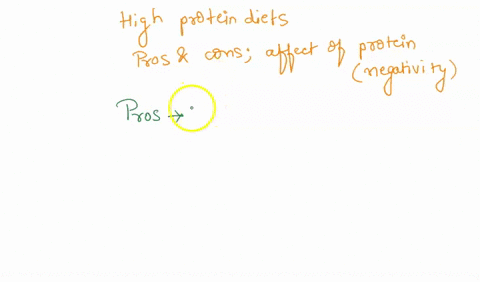 High protein diets
Pros & cons; affect of protein
(negativity)
Pros →